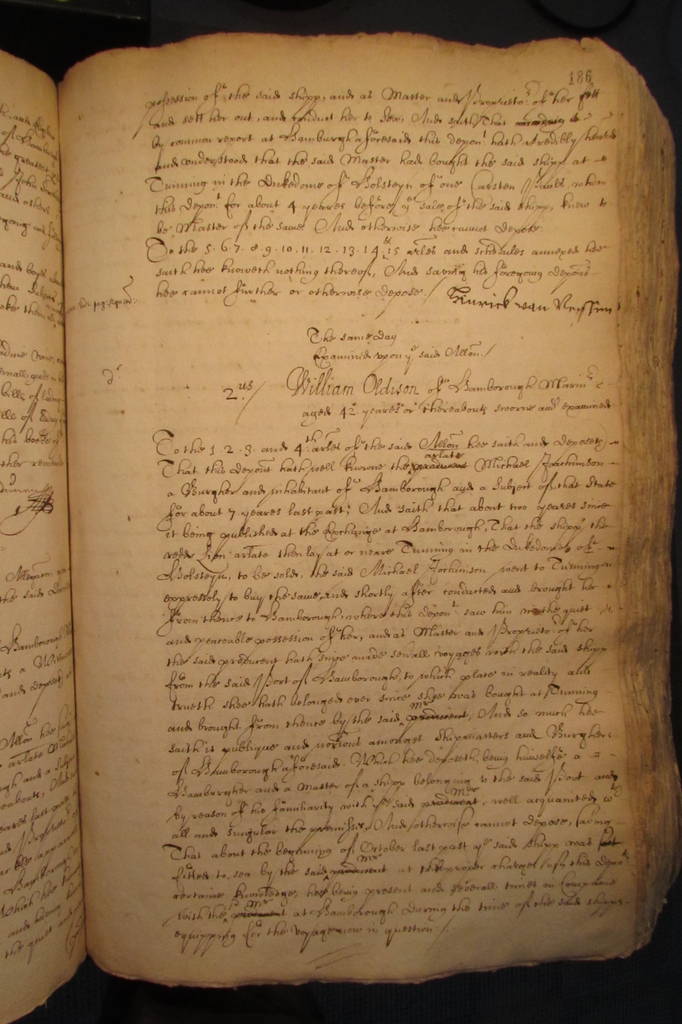 186
possession of the said shipp, and as Master and Proprieto.r of her
and sett her out, and conduct her to Sea, And saith that
by common report at Hamburgh aforesaid this depon.t hath credibly heard
and understood that the said Master had bought the said shipp at
Tunning in the Dukedome of Holsteyn of one Carsten whom
this depon.t for about 4 yeares before y.e sale of the said shipp, knew to
be Master of the same And otherwise hee cannot depose
To the 5. 6. 7. 8. 9. 10. 11. 12. 13. 14. 15 arles and schedules annexed hee
saith hee knoweth nothing thereof, And saving his foregoing deposi͠on
hee cannot further or otherwise depose./
Hinrick van
The same day
Examined upon y.e said Allon./
2.us/ William Oldison of Hamborough Marin.r
aged 42 yeares or thereabouts sworne and examined
To the 1. 2. 3. and 4.th arles of the said Allon hee saith and deposeth
That this depon.t hath well knowne the arlate Michael Jochimson
a Burgher and inhabitant of Hamborough and a Subject of that State
for about 7 yeares last past; And saith that about two yeares since
it being published at the Exchange at Hamborough, That the shipp the
arlate then lay at or neere Tunning in the Dukedome of
Holsteyn, to be sold, the said Michael Jochimson went to Tunning
expressely to buy the same, and shortly after conducted and brought her
from thence to Hamborough, where this depon.t saw him in the quiet
and peaceable possession of her, and as Master and Proprieto.r of her
the said producent hath since made severall voyages with the said shipp
from the said Port of Hamborough, to which place in reality and
trueth shee hath belonged ever since shee was bought at Tunning
and brought from thence by the said M.r producent, And so much hee
saith is publique and notorious amongst shipmasters and Burghers
of Hamborough aforesaid. Which hee deposeth, being himselfe a
Hamburgher and a Master of a shipp belonging to the said Port and
by reason of his familiarity with y.e said M.r producent, well acquainted w.th
all and singular the premisses, And otherwise cannot depose, saving
That about the beginning of October last past y.e said shipp was
fitted to sea by the said M.r producent at the proper charges of this depon.ts
certaine knowledge, hee being present and severall times in Companie
with the s.d M.r producent at Hamborough during the time of the said shipps
equipping for the voyage now in question./